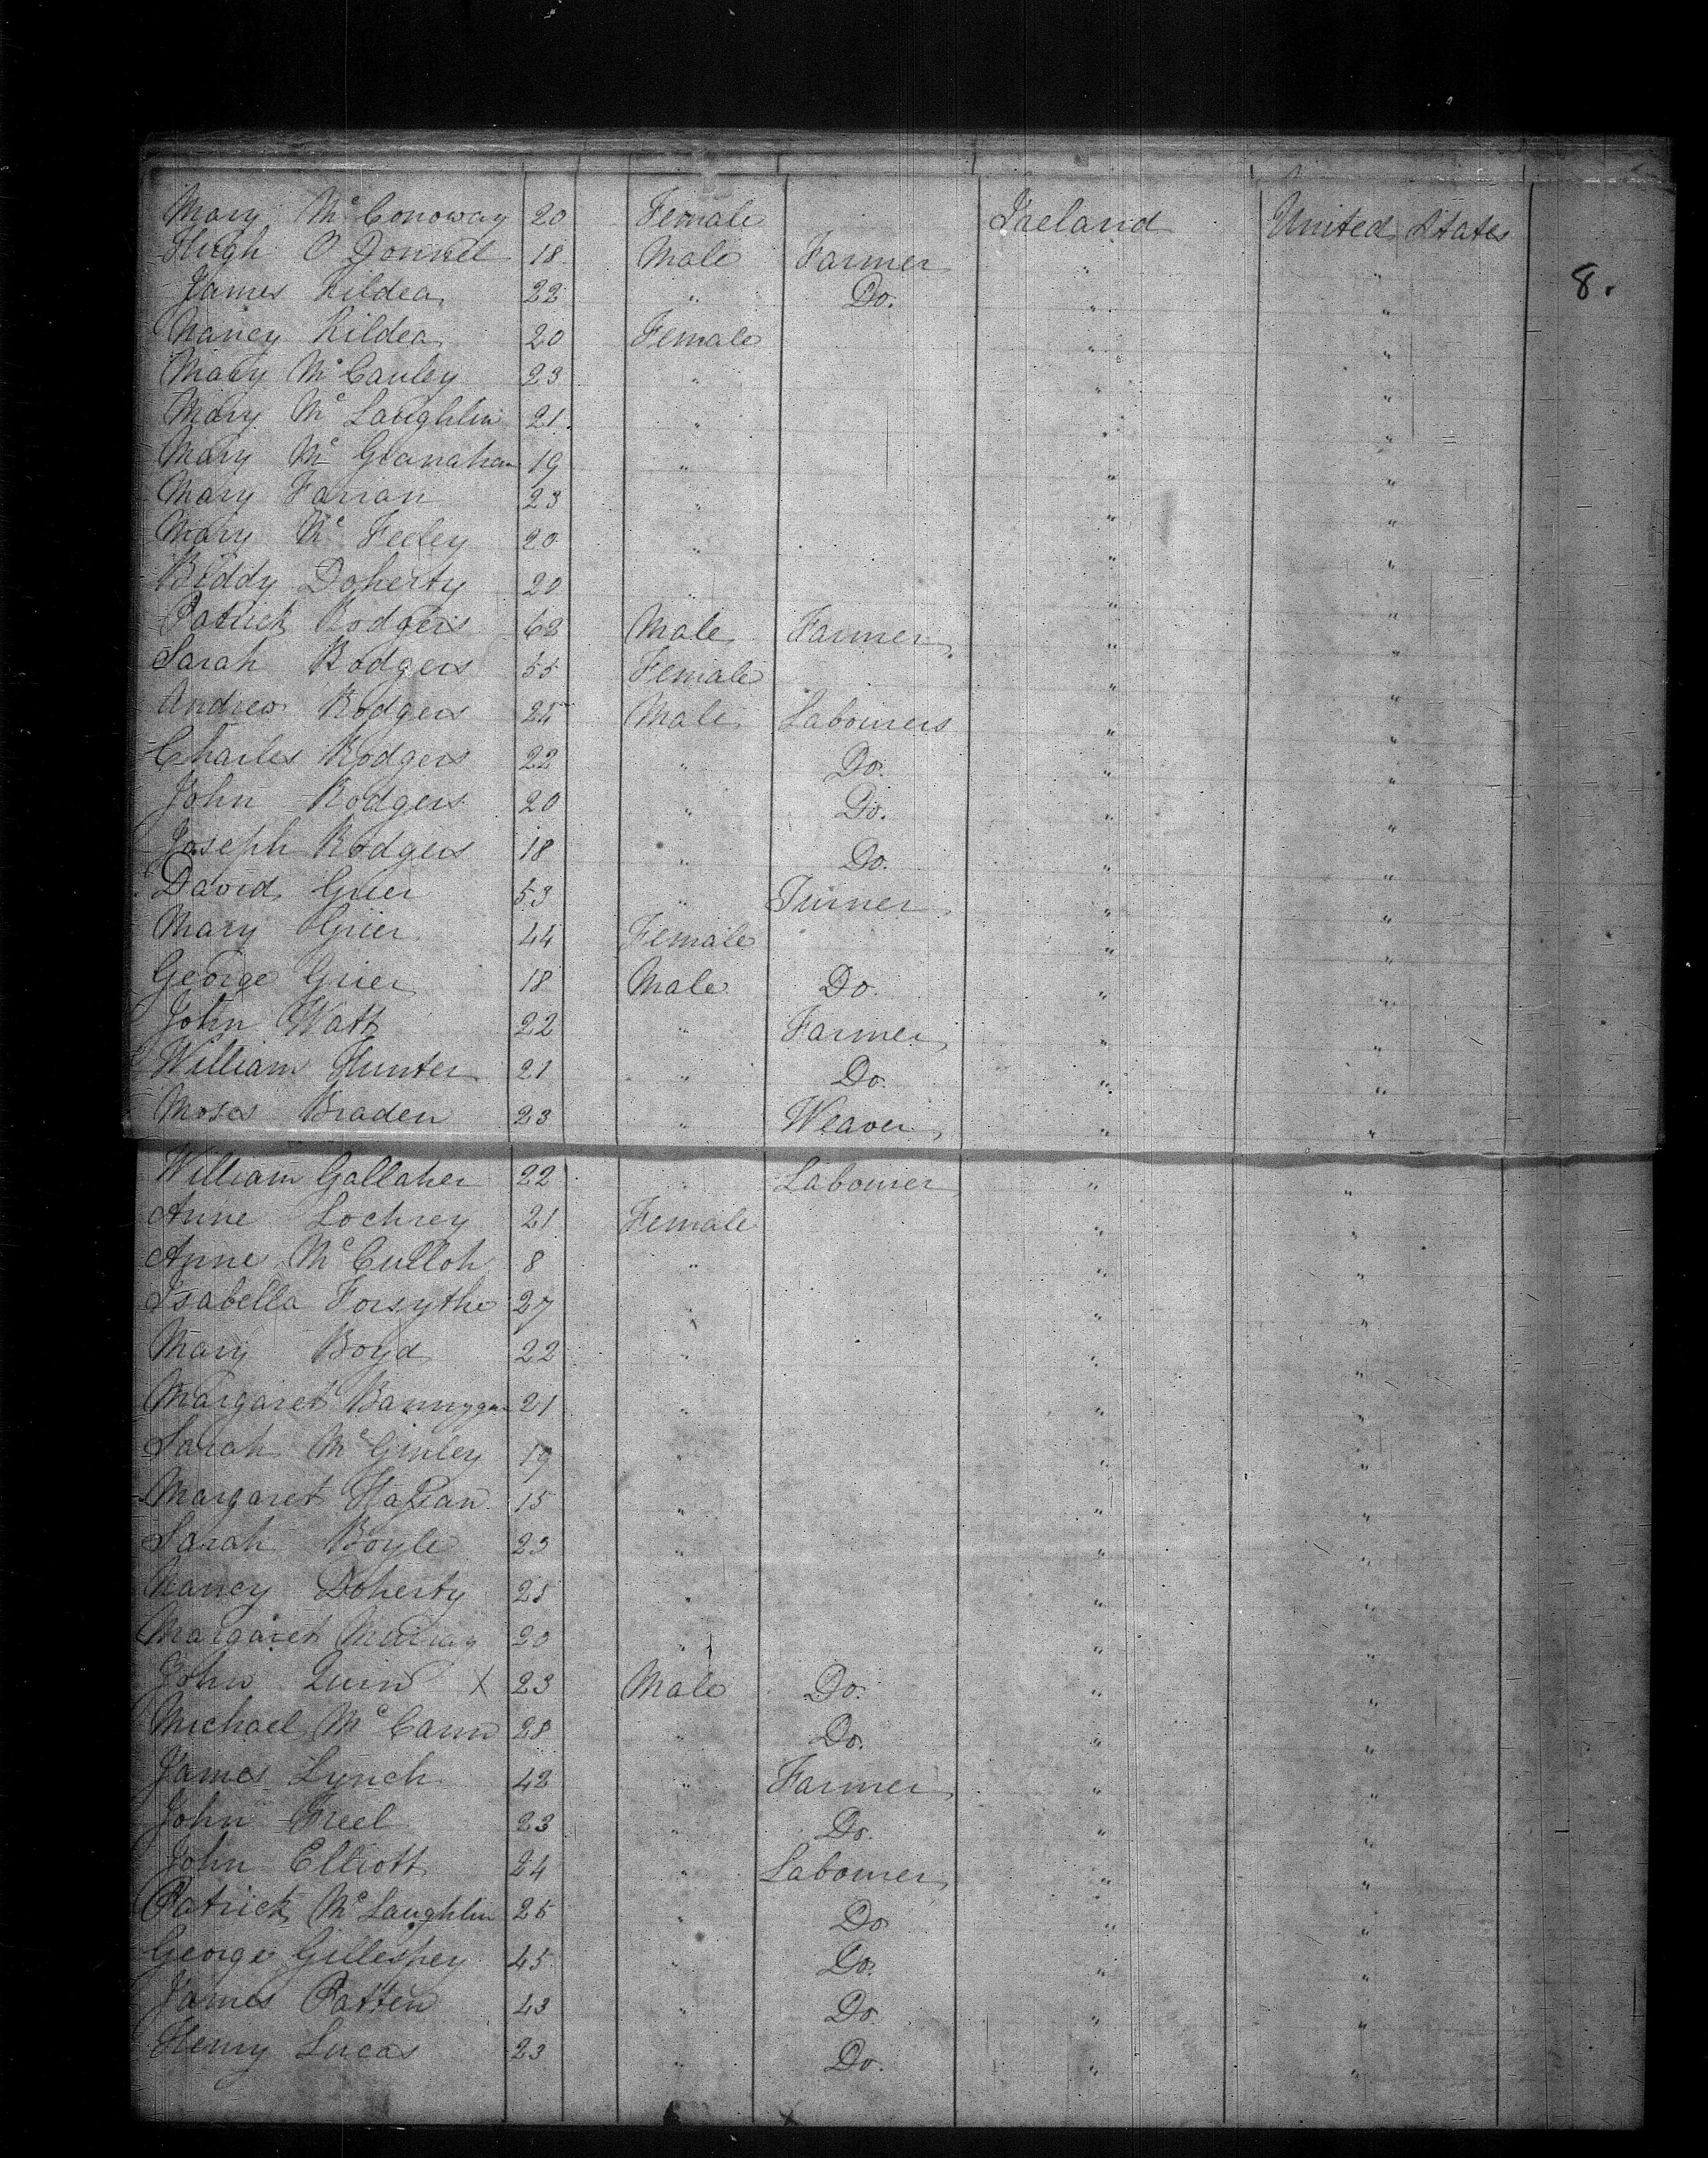 Mary McConoway 20 Female Ireland United States
Hugh O Donnel 18 Male Farmer " "
8.
James Kildea 22 " Do. " "
Nancy Kildea 20 Female " "
Mary McCauley 23 " " "
Mary Mc Laughlin 21 " " "
Mary Mc Granahan 19 " " "
Mary Farran 23 " " "
Mary Mc Feeley 20 " " "
Biddy Doherty 20 " " "
Patrick Rodgers 62 Male Farmer " "
Sarah Rodgers 55 Female " "
Andrew Rodgers 25 Male Labourers " "
Charles Rodgers 22 " Do. " "
John Rodgers 20 " Do. " "
Joseph Rodgers 18 " Do. " "
David Grier 53 " Turner " "
Mary Grier 44 Female " "
George Grier 18 Male Do. " "
John Watt 22 " Farmer " "
William Hunter 21 " Do. " "
Moses Braden 23 " Weaver " "
William Gallaher 22 " Labourer " "
Anne Lochrey 21 Female " "
Anne McCulloh 8 " " "
Isabella Forsythe 27 " " "
Mary Boyd 22 " " "
Margaret 21 " " "
Sarah McGinley 19 " " "
Margaret 15 " " "
Sarah Boyle 23 " " "
Nancy Doherty 25 " " "
Margaret Murray 20 " " "
John Quin X 23 Male Do. " "
Michael McCann 28 " Do. " "
James Lynch 42 " Farmer " "
John Freel 23 " Do. " "
John Elliott 24 " Labourer " "
Patrick McLaughlin 25 " Do " "
George Gilleshey 45 " Do. " "
James Patten 43 " Do. " "
Henry Lucas 23 " Do. " "